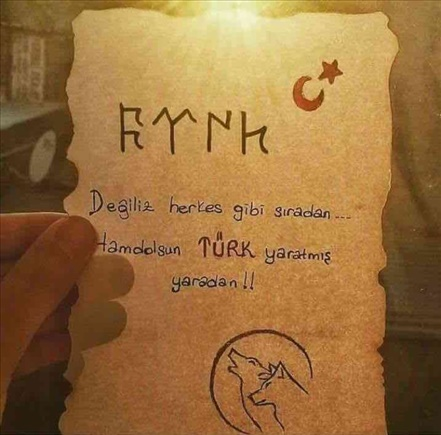 𐱅𐰇𐰼𐰜
Değiliz herkes gibi sıradan...
Hamdolsun TÜRK yaratmış
yaradan!!